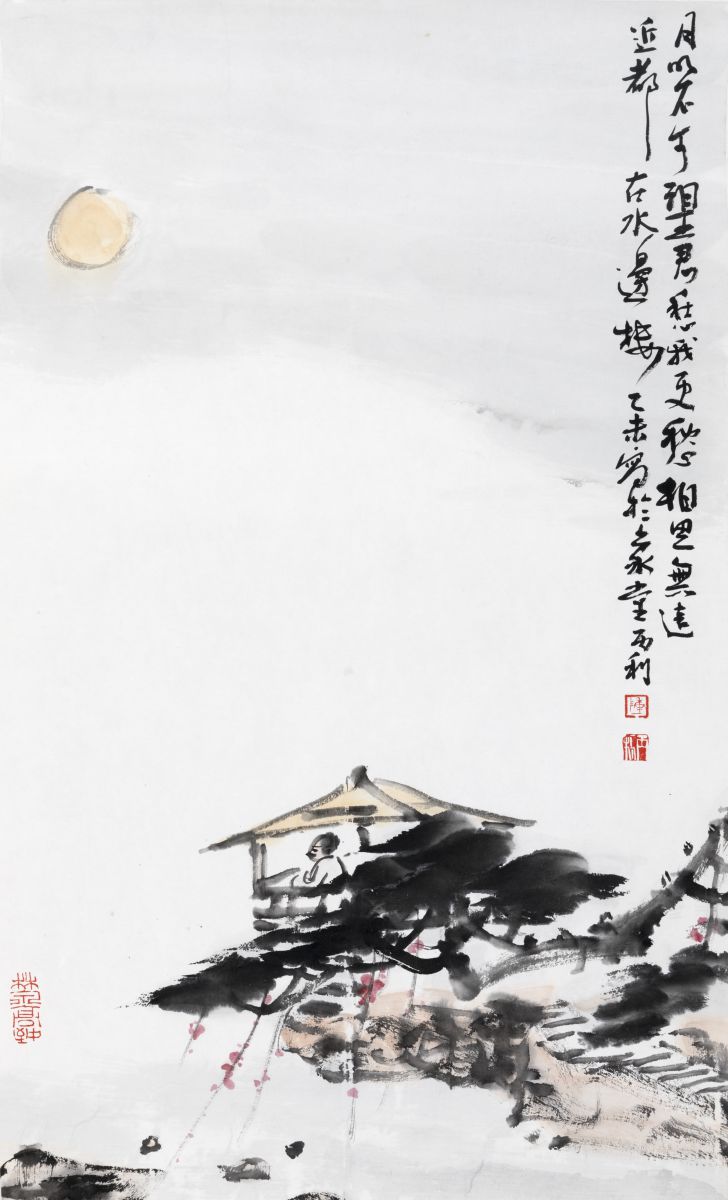 月明不可朢君愁我更愁相思無遠
近都在水邊樓乙未寫於永堂
陳